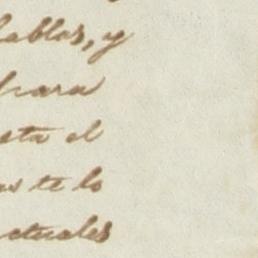 ables, y
para
sta el
as te lo
ctuales